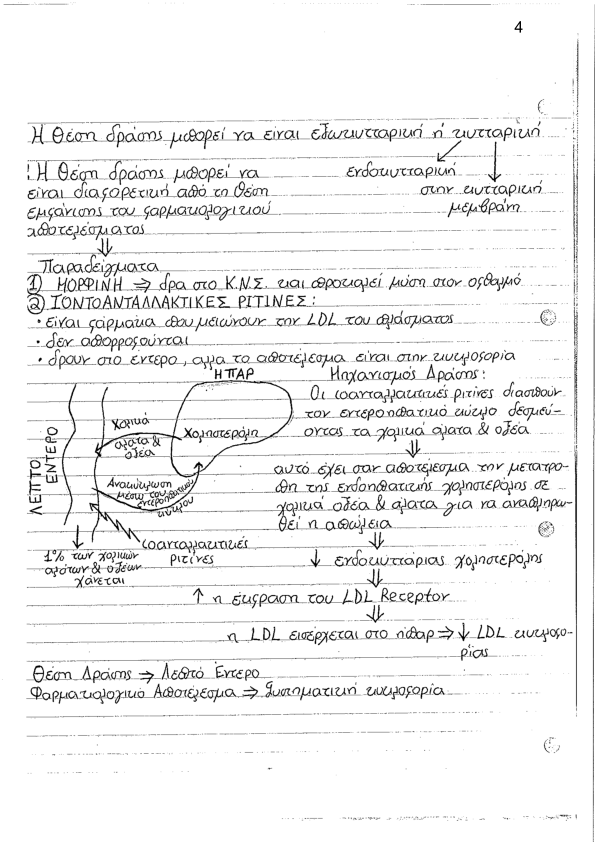 4
Η θέση δράσης μπορεί να είναι εξωκυτταρική ή κυτταρική
! Η θέση δράσης μπορεί να
είναι διαφορετική από τη θέση
εμφάνισης του φαρμακολογικού
αποτελέσματος
ενδοκυτταρική
στην κυτταρική
μεμβράνη
⇓
Παραδείγματα
① ΜΟΡΦΙΝΗ ⇒ δρα στο Κ.Ν.Σ. και προκαλεί μύση στον οφθαλμό
② ΙΟΝΤΟΑΝΤΑΛΛΑΚΤΙΚΕΣ ΡΙΤΙΝΕΣ:
• είναι φάρμακα που μειώνουν την LDL του πλάσματος
• δεν απορροφούνται
• δρουν στο έντερο, αλλά το αποτέλεσμα είναι στην κυκλοφορία
ΗΠΑΡ
ΛΕΠΤΟ
ΕΝΤΕΡΟ
Χολικά
άλατα &
οξέα
Χοληστερόλη
Ανακύκλωση
μέσω του
εντεροηπατικού
κύκλου
ιοανταλλακτικές
ριτίνες
1% των χολικών
αλάτων & οξέων
χάνεται
Μηχανισμός Δράσης:
Οι ιοανταλλακτικές ριτίνες διασπούν
τον εντεροηπατικό κύκλο δεσμεύ-
οντας τα χολικά άλατα & οξέα
⇓
αυτό έχει σαν αποτέλεσμα την μετατρο-
πή της ενδοηπατικής χοληστερόλης σε
χολικά οξέα & άλατα για να αναπληρω-
θεί η απώλεια
⇓
↓ ενδοκυττάριας χοληστερόλης
⇓
↑ η έκφραση του LDL Receptor
⇓
η LDL εισέρχεται στο ήπαρ ⇒ ↓ LDL κυκλοφο-
ρίας
Θέση Δράσης ⇒ Λεπτό Έντερο
Φαρμακολογικό Αποτέλεσμα ⇒ Συστηματική κυκλοφορία